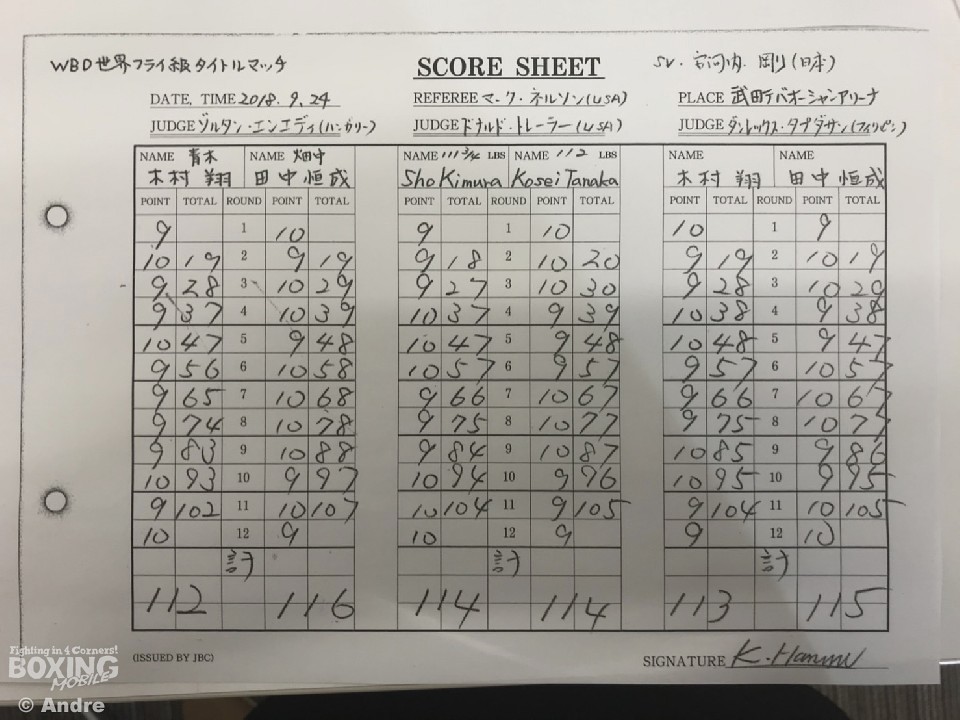 WBO世界フライ級タイトルマッチ
SCORE SHEET
SV. 宮河内 剛(日本)
DATE, TIME 2018. 9. 24
REFEREE マーク・ネルソン(USA)
PLACE 武田テバオーシャンアリーナ
JUDGE ゾルタン・エンエディ(ハンガリー)
JUDGE ドナルド・トレーラー(USA)
JUDGE ダンレックス・タプダサン(フィリピン)
NAME 青木 NAME 畑中 NAME 111 3/4 LBS NAME 112 LBS NAME NAME
木村 翔 田中恒成 Sho Kimura Kosei Tanaka 木村 翔 田中恒成
POINT TOTAL ROUND POINT TOTAL POINT TOTAL ROUND POINT TOTAL POINT TOTAL ROUND POINT TOTAL
9 1 10 9 1 10 10 1 9
10 19 2 9 19 9 18 2 10 20 9 19 2 10 19
9 28 3 10 29 9 27 3 10 30 9 28 3 10 29
9 37 4 10 39 10 37 4 9 39 10 38 4 9 38
10 47 5 9 48 10 47 5 9 48 10 48 5 9 47
9 56 6 10 58 10 57 6 9 57 9 57 6 10 57
9 65 7 10 68 9 66 7 10 67 9 66 7 10 67
9 74 8 10 78 9 75 8 10 77 9 75 8 10 77
9 83 9 10 88 9 84 9 10 87 10 85 9 9 86
10 93 10 9 97 10 94 10 9 96 10 95 10 9 95
9 102 11 10 107 10 104 11 9 105 9 104 11 10 105
10 12 9 10 12 9 9 12 10
計 計 計
112 116 114 114 113 115
(ISSUED BY JBC)
SIGNATURE K.
Fighting in 4 Corners!
BOXING
MOBILE
© Andre